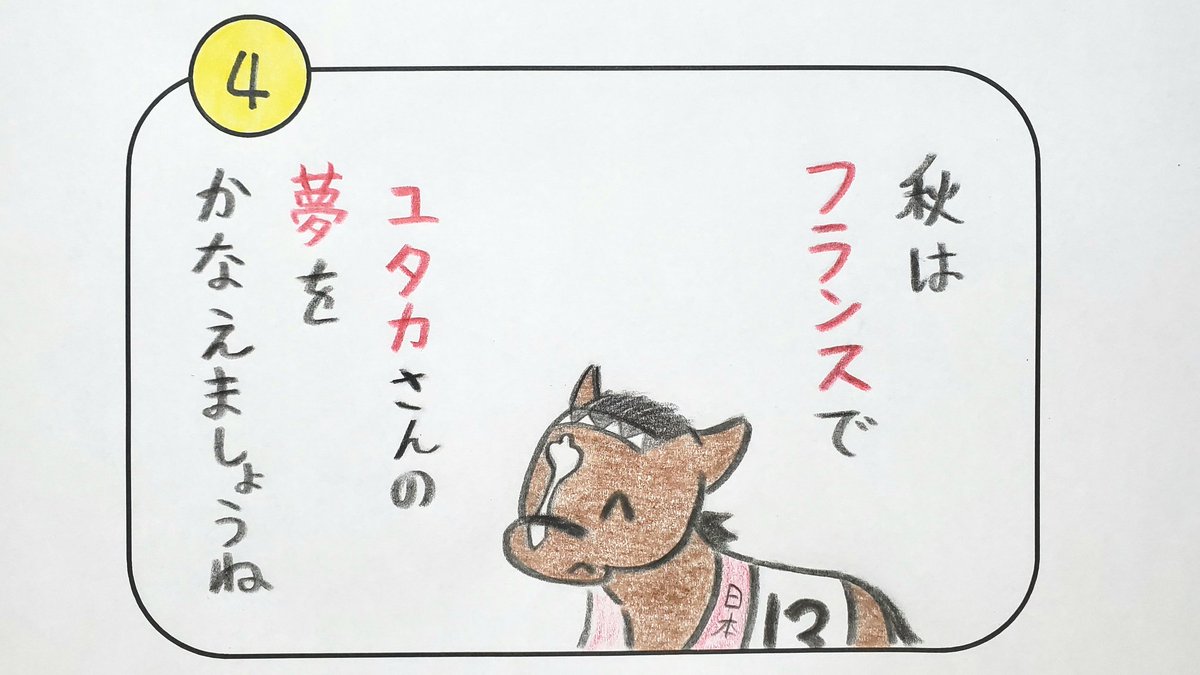 4
秋は
フランスで
ユタカさんの
夢を
かなえましょうね
日本
13